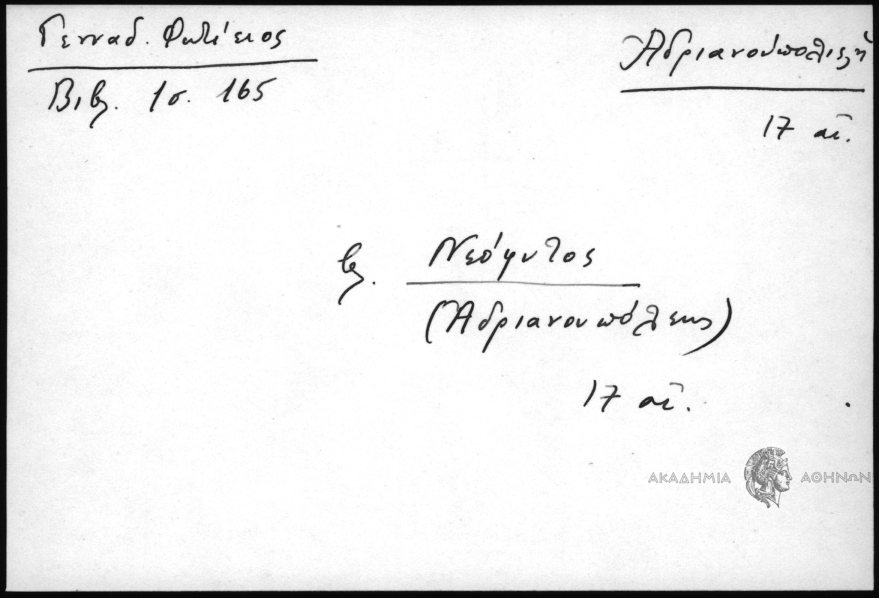 Γενναδ. Φωτίειος
Βιβλ. 1σ. 165
Ἀδριανούπολις
17 αἰ.
βλ. Νεόφυτος
(Ἀδριανουπόλεως)
17 αἰ.
ΑΚΑΔΗΜΙΑ ΑΘΗΝΩΝ